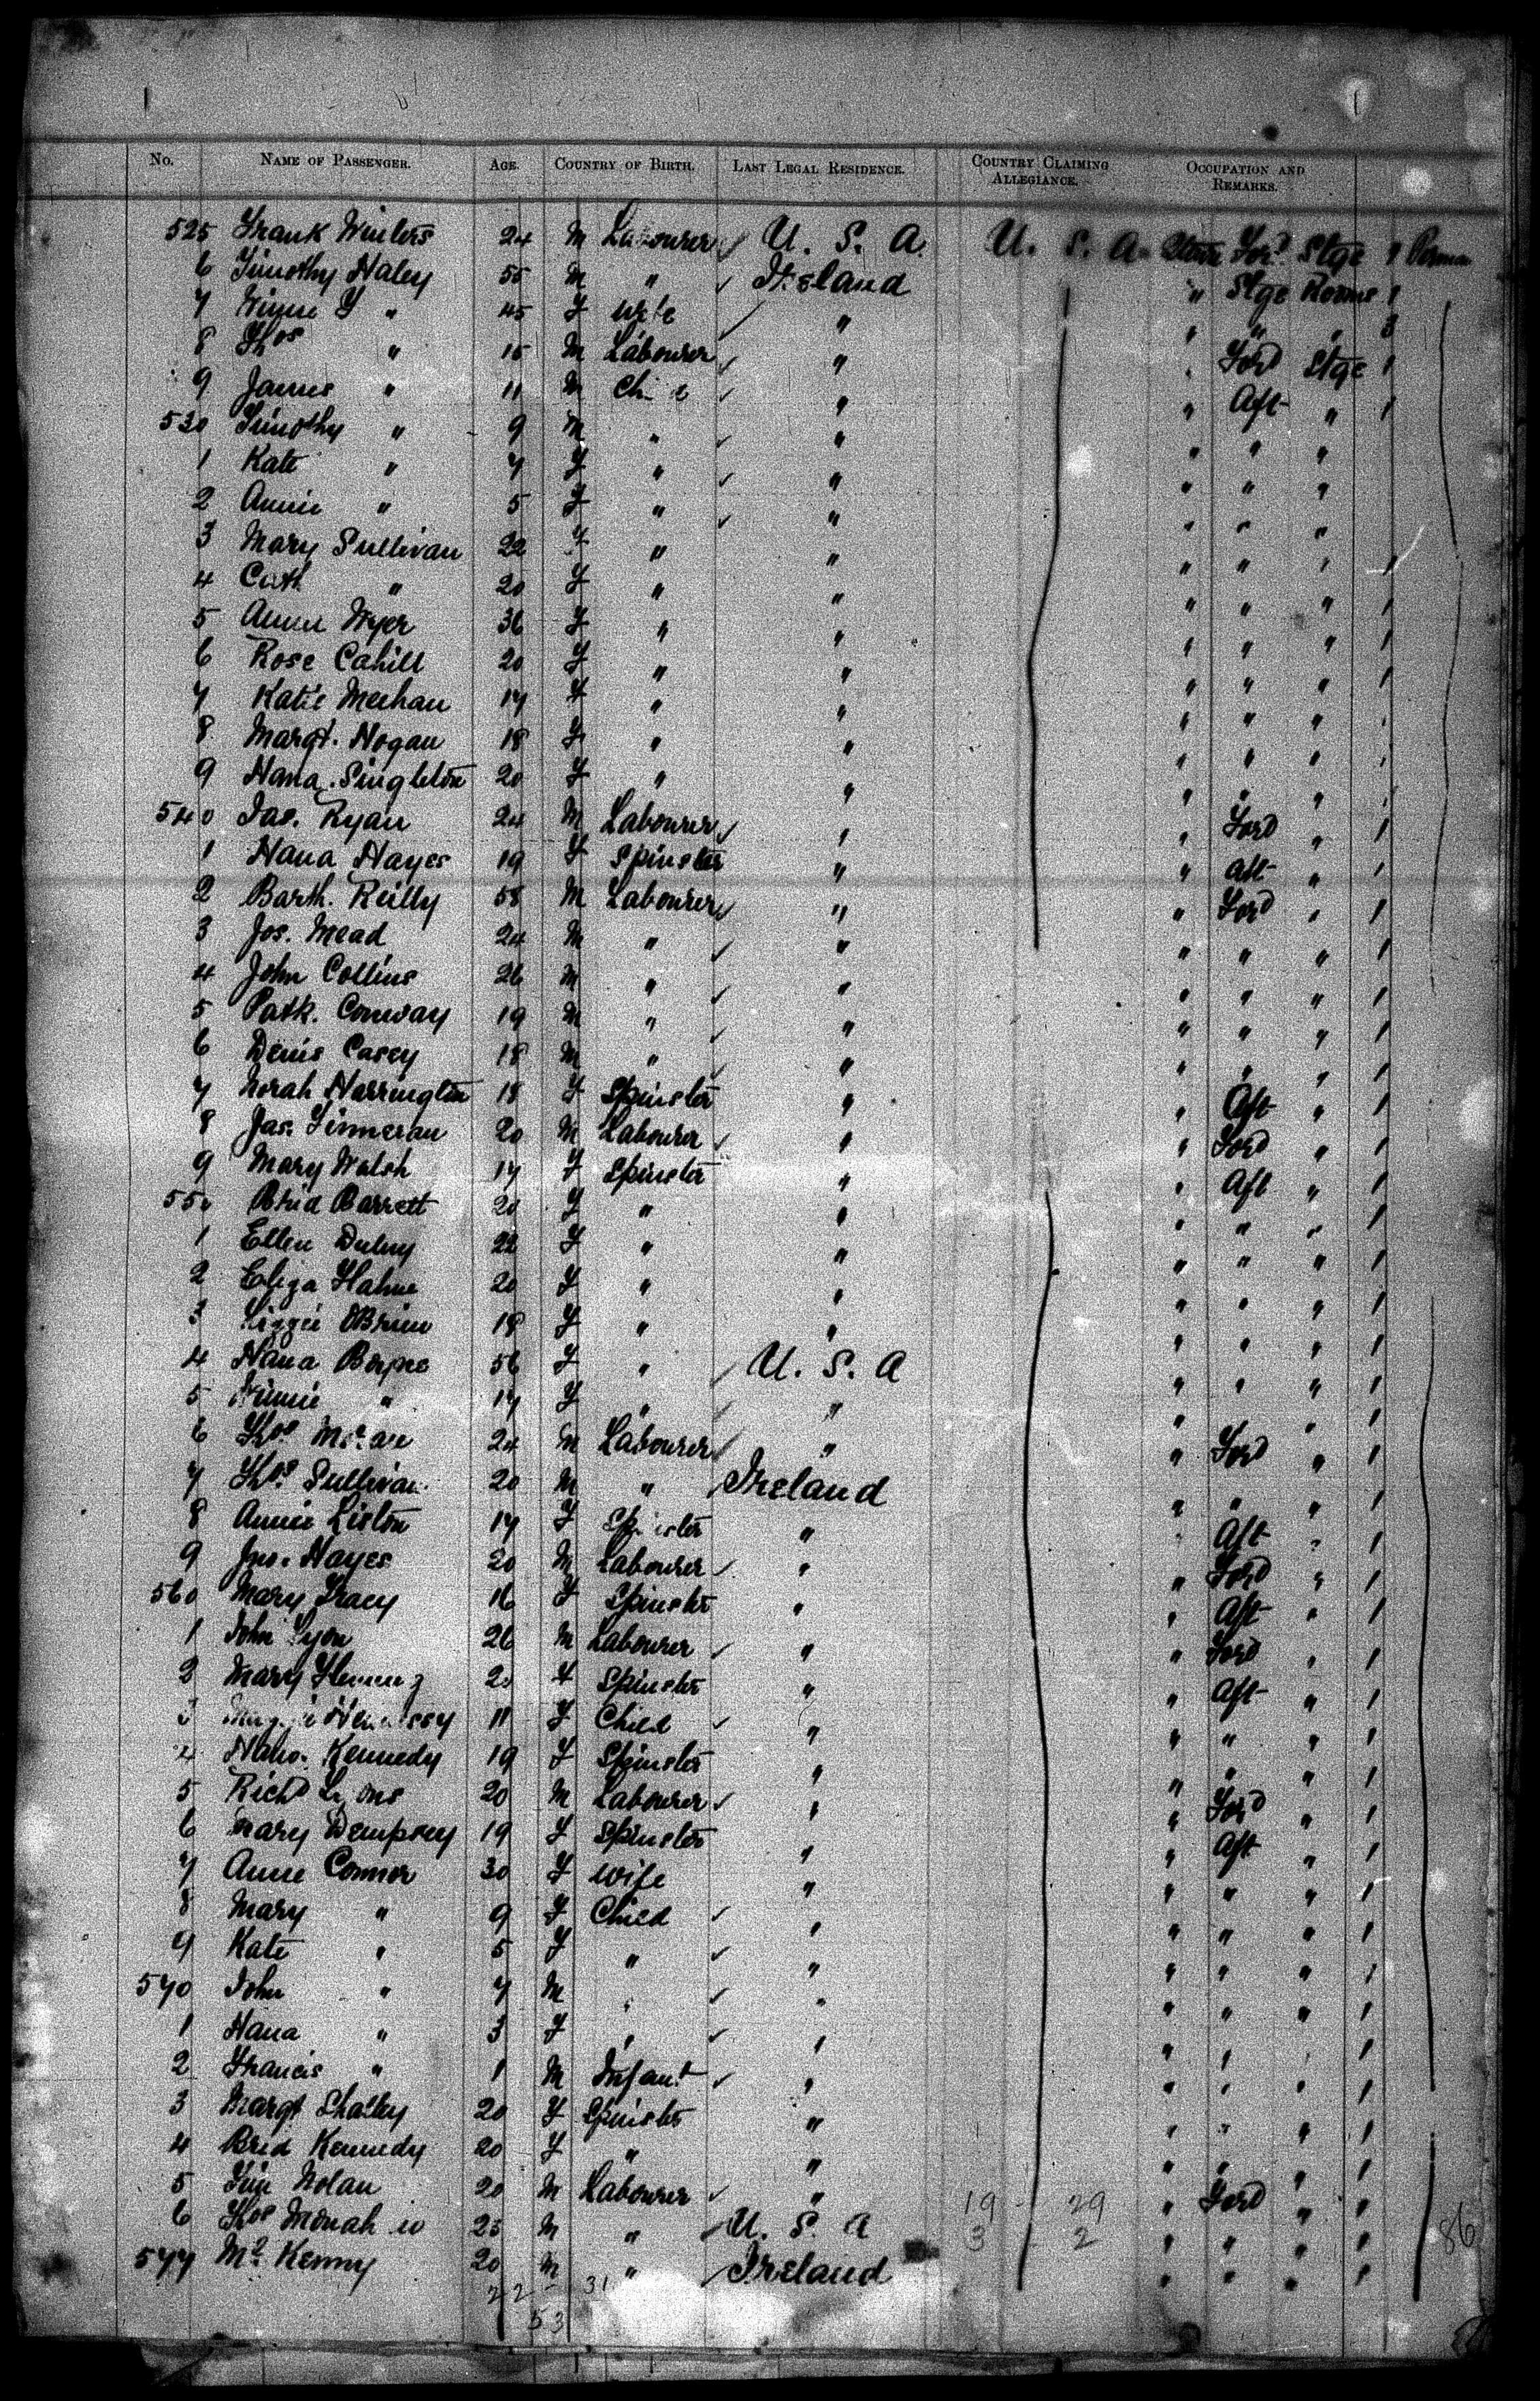 No. NAME OF PASSENGER. AGE. COUNTRY OF BIRTH. LAST LEGAL RESIDENCE. COUNTRY CLAIMING ALLEGIANCE. OCCUPATION AND REMARKS.
525 Frank Winters 24 M Labourer U. S. A. U. S. A Ford Stge 1
6 Timothy Haley 55 M " Ireland " Stge Rooms 1
7 " 45 F Wife " " " " 3
8 Thos " 15 M Labourer " " Ford Stge 1
9 James " 11 M " " Aft " 1
530 Timothy " 9 M " " " " "
1 Kate " 7 F " " " " "
2 Annie " 5 F " " " " "
3 Mary Sullivan 22 F " " " " " 1
4 Cath " 20 F " " " " " 1
5 Annie Wyer 36 F " " " " " 1
6 Rose Cahill 20 F " " " " " 1
7 Katie Meehan 17 F " " " " " 1
8 Margt. Hogan 18 F " " " " " 1
9 Hana. Singleton 20 F " " " " " 1
540 Jas. Ryan 24 M Labourer " " Ford " 1
1 Hana Hayes 19 F Spinster " " Aft " 1
2 Barth. Reilly 58 M Labourer " " Ford " 1
3 Jos. Mead 24 M " " " " " 1
4 John Collins 26 M " " " " " 1
5 Patk. Conway 19 M " " " " " 1
6 Denis Casey 18 M " " " " " 1
7 Norah Harrington 18 F Spinster " " Aft " 1
8 Jas. Finneran 20 M Labourer " " Ford " 1
9 Mary Walsh 17 F Spinster " " Aft " 1
550 Brid Barrett 20 F " " " " " 1
1 Ellen 22 F " " " " " 1
2 Eliza 20 F " " " " " 1
3 Lizzie OBrien 18 F " " " " " 1
4 Hana 56 F " U. S. A " " " 1
5 " 17 F " " " " " 1
6 Thos 24 M Labourer " " Ford " 1
7 Thos Sullivan 20 M " Ireland " " " 1
8 Annie Liston 17 F Spinster " " Aft " 1
9 Jno. Hayes 20 M Labourer " " Ford " 1
560 Mary Tracy 16 F Spinster " " Aft " 1
1 John Lyon 26 M Labourer " " Ford " 1
2 Mary F Spinster " " Aft " 1
3 11 F Child " " " " 1
4 Kennedy 19 F Spinster " " " " 1
5 Richd Lyons 20 M Labourer " " Ford " 1
6 Mary Dempsey 19 F Spinster " " Aft " 1
7 Annie Connor 30 F Wife " " " " 1
8 Mary " 9 F Child " " " " 1
9 Kate " 5 F " " " " " 1
570 John " 7 M " " " " " 1
1 Hana " 3 F " " " " " 1
2 Francis " 1 M Infant " " " " 1
3 Margt 20 F Spinster " " " " 1
4 Brid Kennedy 20 F " " " " " 1
5 Nolan 20 M Labourer " 19 29 " Ford " 1
6 Thos 25 M " U. S. A 3 2 " " " 1 86
577 Kenny 20 M " Ireland " " " 1
22 - 31
53